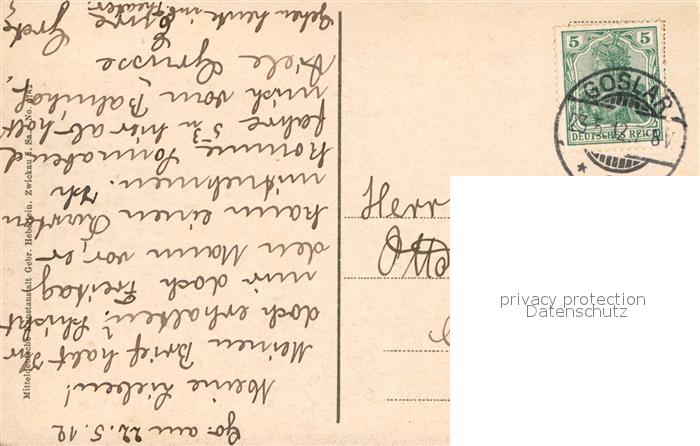 Go. am 22.5.12
Meine Lieben!
Meinen Brief habt Ihr
doch erhalten, schickt
mir doch Freitag
den Mann vor, er
kann einen Karton
mitnehmen. Ich
komme Sonnabend
fahre 5 3/4 hier ab holt
mich vom Bahnhof.
Viele Grüsse
Eure Grete
Gehen heute ins Theater.
Mitteldeutsche Kunstanstalt Gebr. Heberlein, Zwickau i. Sa. No.
5 5
DEUTSCHES REICH
GOSLAR
Herr
Otto
privacy protection
Datenschutz